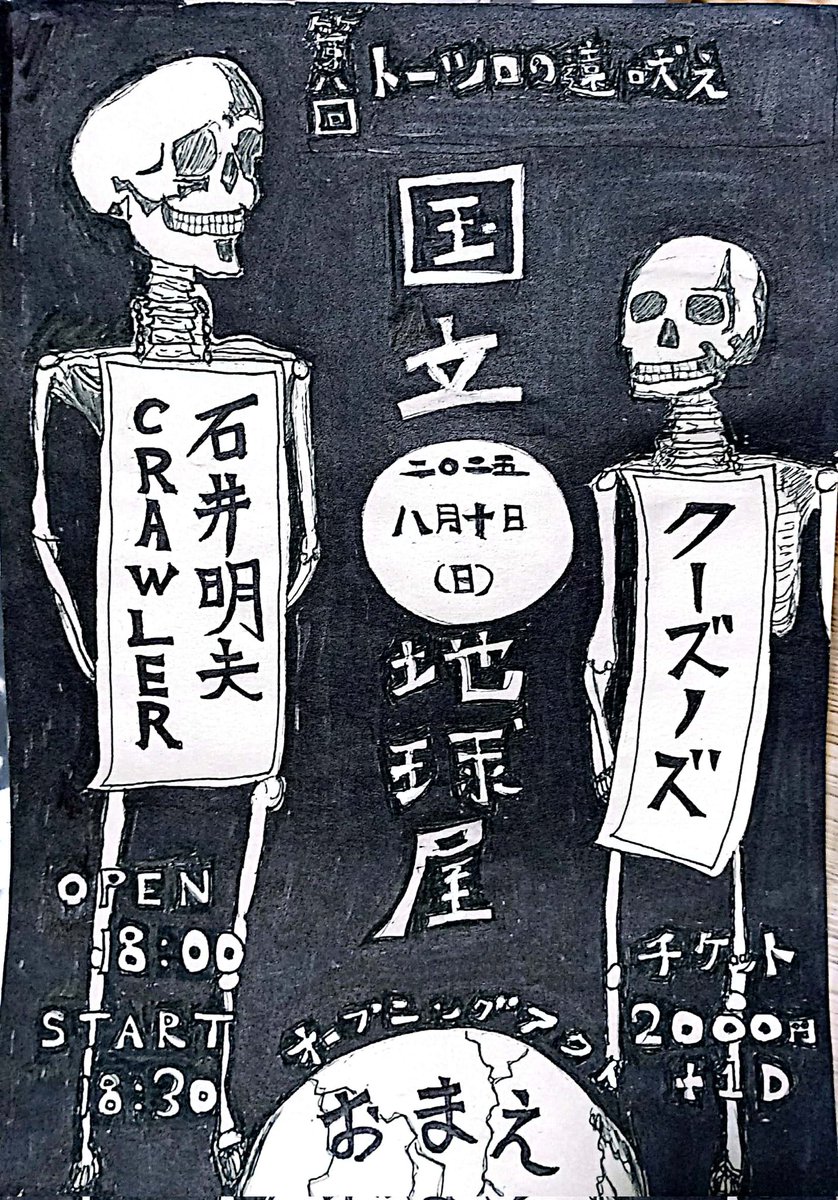 第八回
トーツロの遠吠え
国立
二〇二五
八月十日
(日)
地球屋
石井明夫
CRAWLER
クーズノズ
OPEN
18:00
START
18:30
チケット
2000円
+1D
オープニングアクト
おまえ